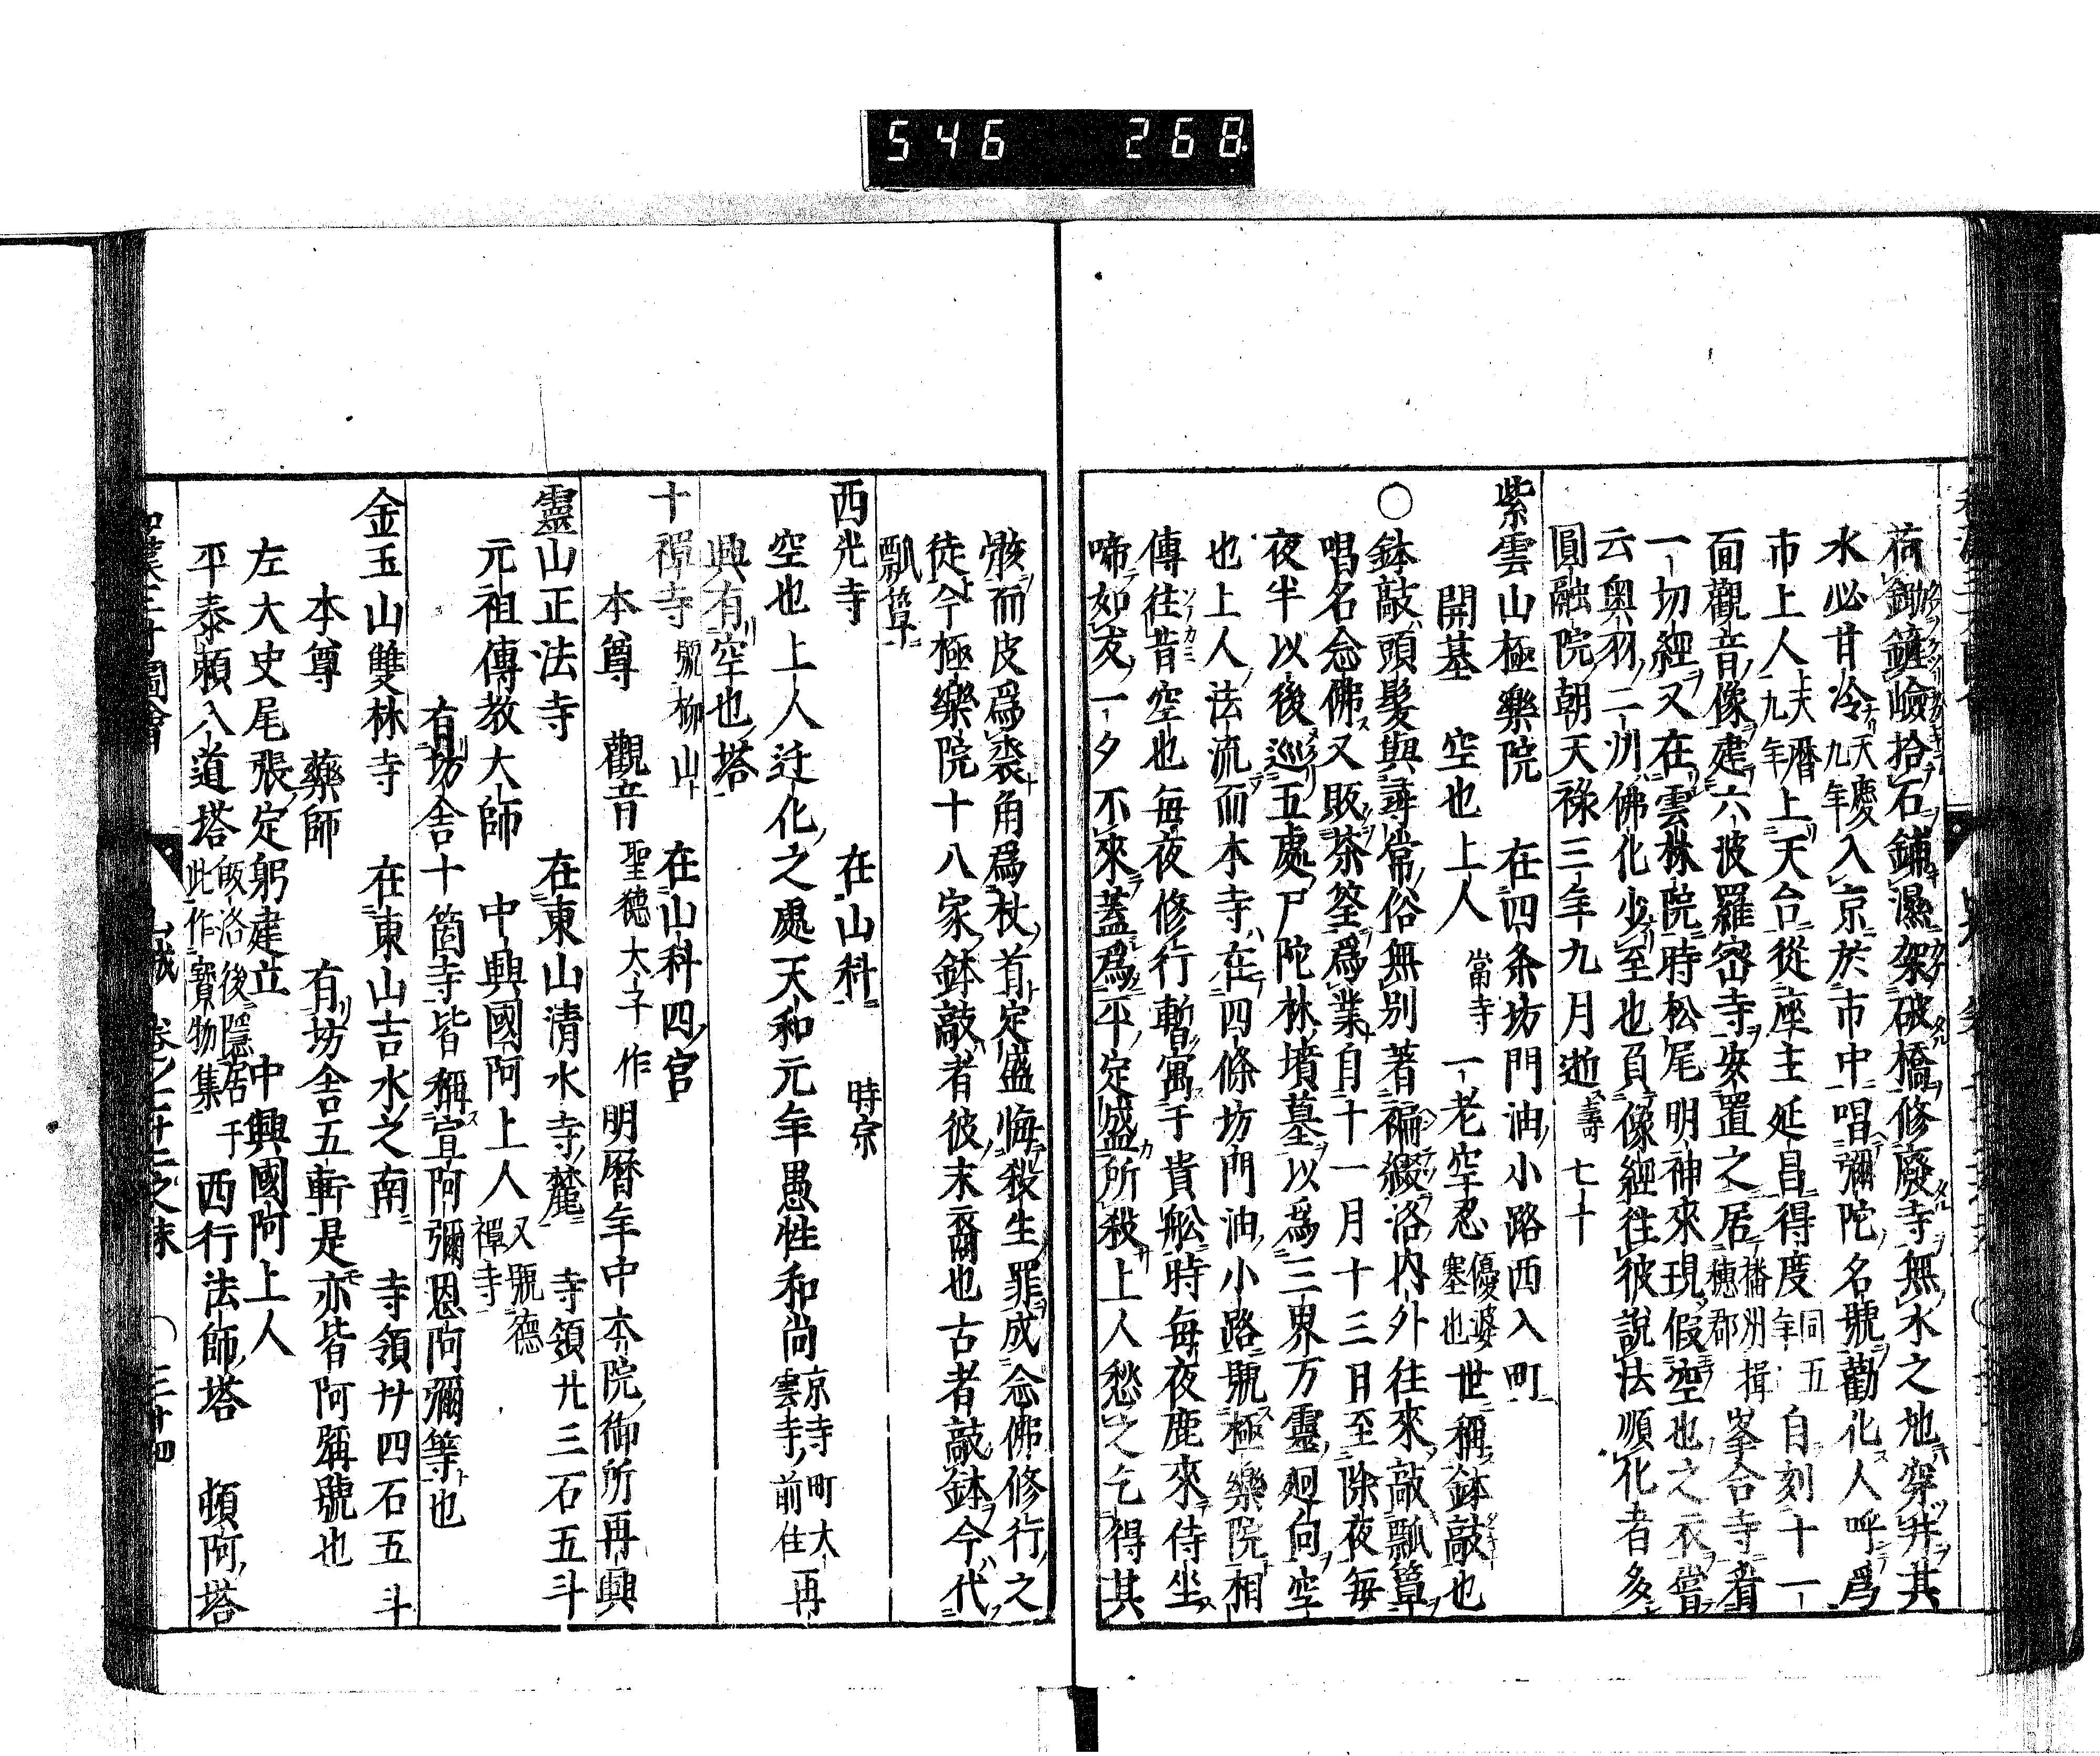 546 268
荷鋤鏟嶮拾石鋪濕架破橋修廢寺無水之地穿井其
水必甘冷天慶九年入京於市中唱彌陀名號勸化人呼爲
市上人天暦九年上天台從座主延昌得度同五年自刻十一
面觀音像建六波羅密寺安置之居播州揖穂郡峯合寺看
一切經又在雲林院時松尾明神來現假空也之衣嘗
云奥羽二州佛化少至也負像經往彼説法順化者多
圓融院朝天祿三年九月逝壽七十
紫雲山極樂院 在四条坊門油小路西入町
開基 空也上人 當寺一老空忍優婆塞也世稱鉢敲也
〇鉢敲頭髮與尋常俗無別著褊綴洛内外往來敲瓢簞
唱名念佛又販茶筌爲業自十一月十三日至除夜毎
夜半以後巡五處尸陀林墳墓以爲三界万靈廻向空
也上人法流而本寺在四條坊門油小路號極樂院相
傳往昔空也毎夜修行暫寓于貴船時毎夜鹿來侍坐
啼如友一夕不來蓋爲平定盛所殺上人愁之乞得其
骸而皮爲裘角爲杖首定盛悔殺生罪成念佛修行之
徒今極樂院十八家鉢敲者彼末裔也古者敲鉢今代
瓢簞
西光寺 在山科 時宗
空也上人迁化之處天和元年愚性和尚京寺町大雲寺前住再
興有空也塔
十禪寺號柳山 在山科四宮
本尊 觀音聖德太子作 明暦年中本院御所再興
靈山正法寺 在東山清水寺麓 寺領廿三石五斗
元祖傳教大師 中興國阿上人又號德禪寺
有坊舍十箇寺皆稱宣阿彌恩阿彌等也
金玉山雙林寺 在東山吉水之南 寺領廿四石五斗
本尊 藥師 有坊舍五軒是亦皆阿稱號也
左大史尾張定躬建立 中興國阿上人
平泰頼入道塔皈洛後隱居于此作寳物集 西行法師塔 頓阿塔